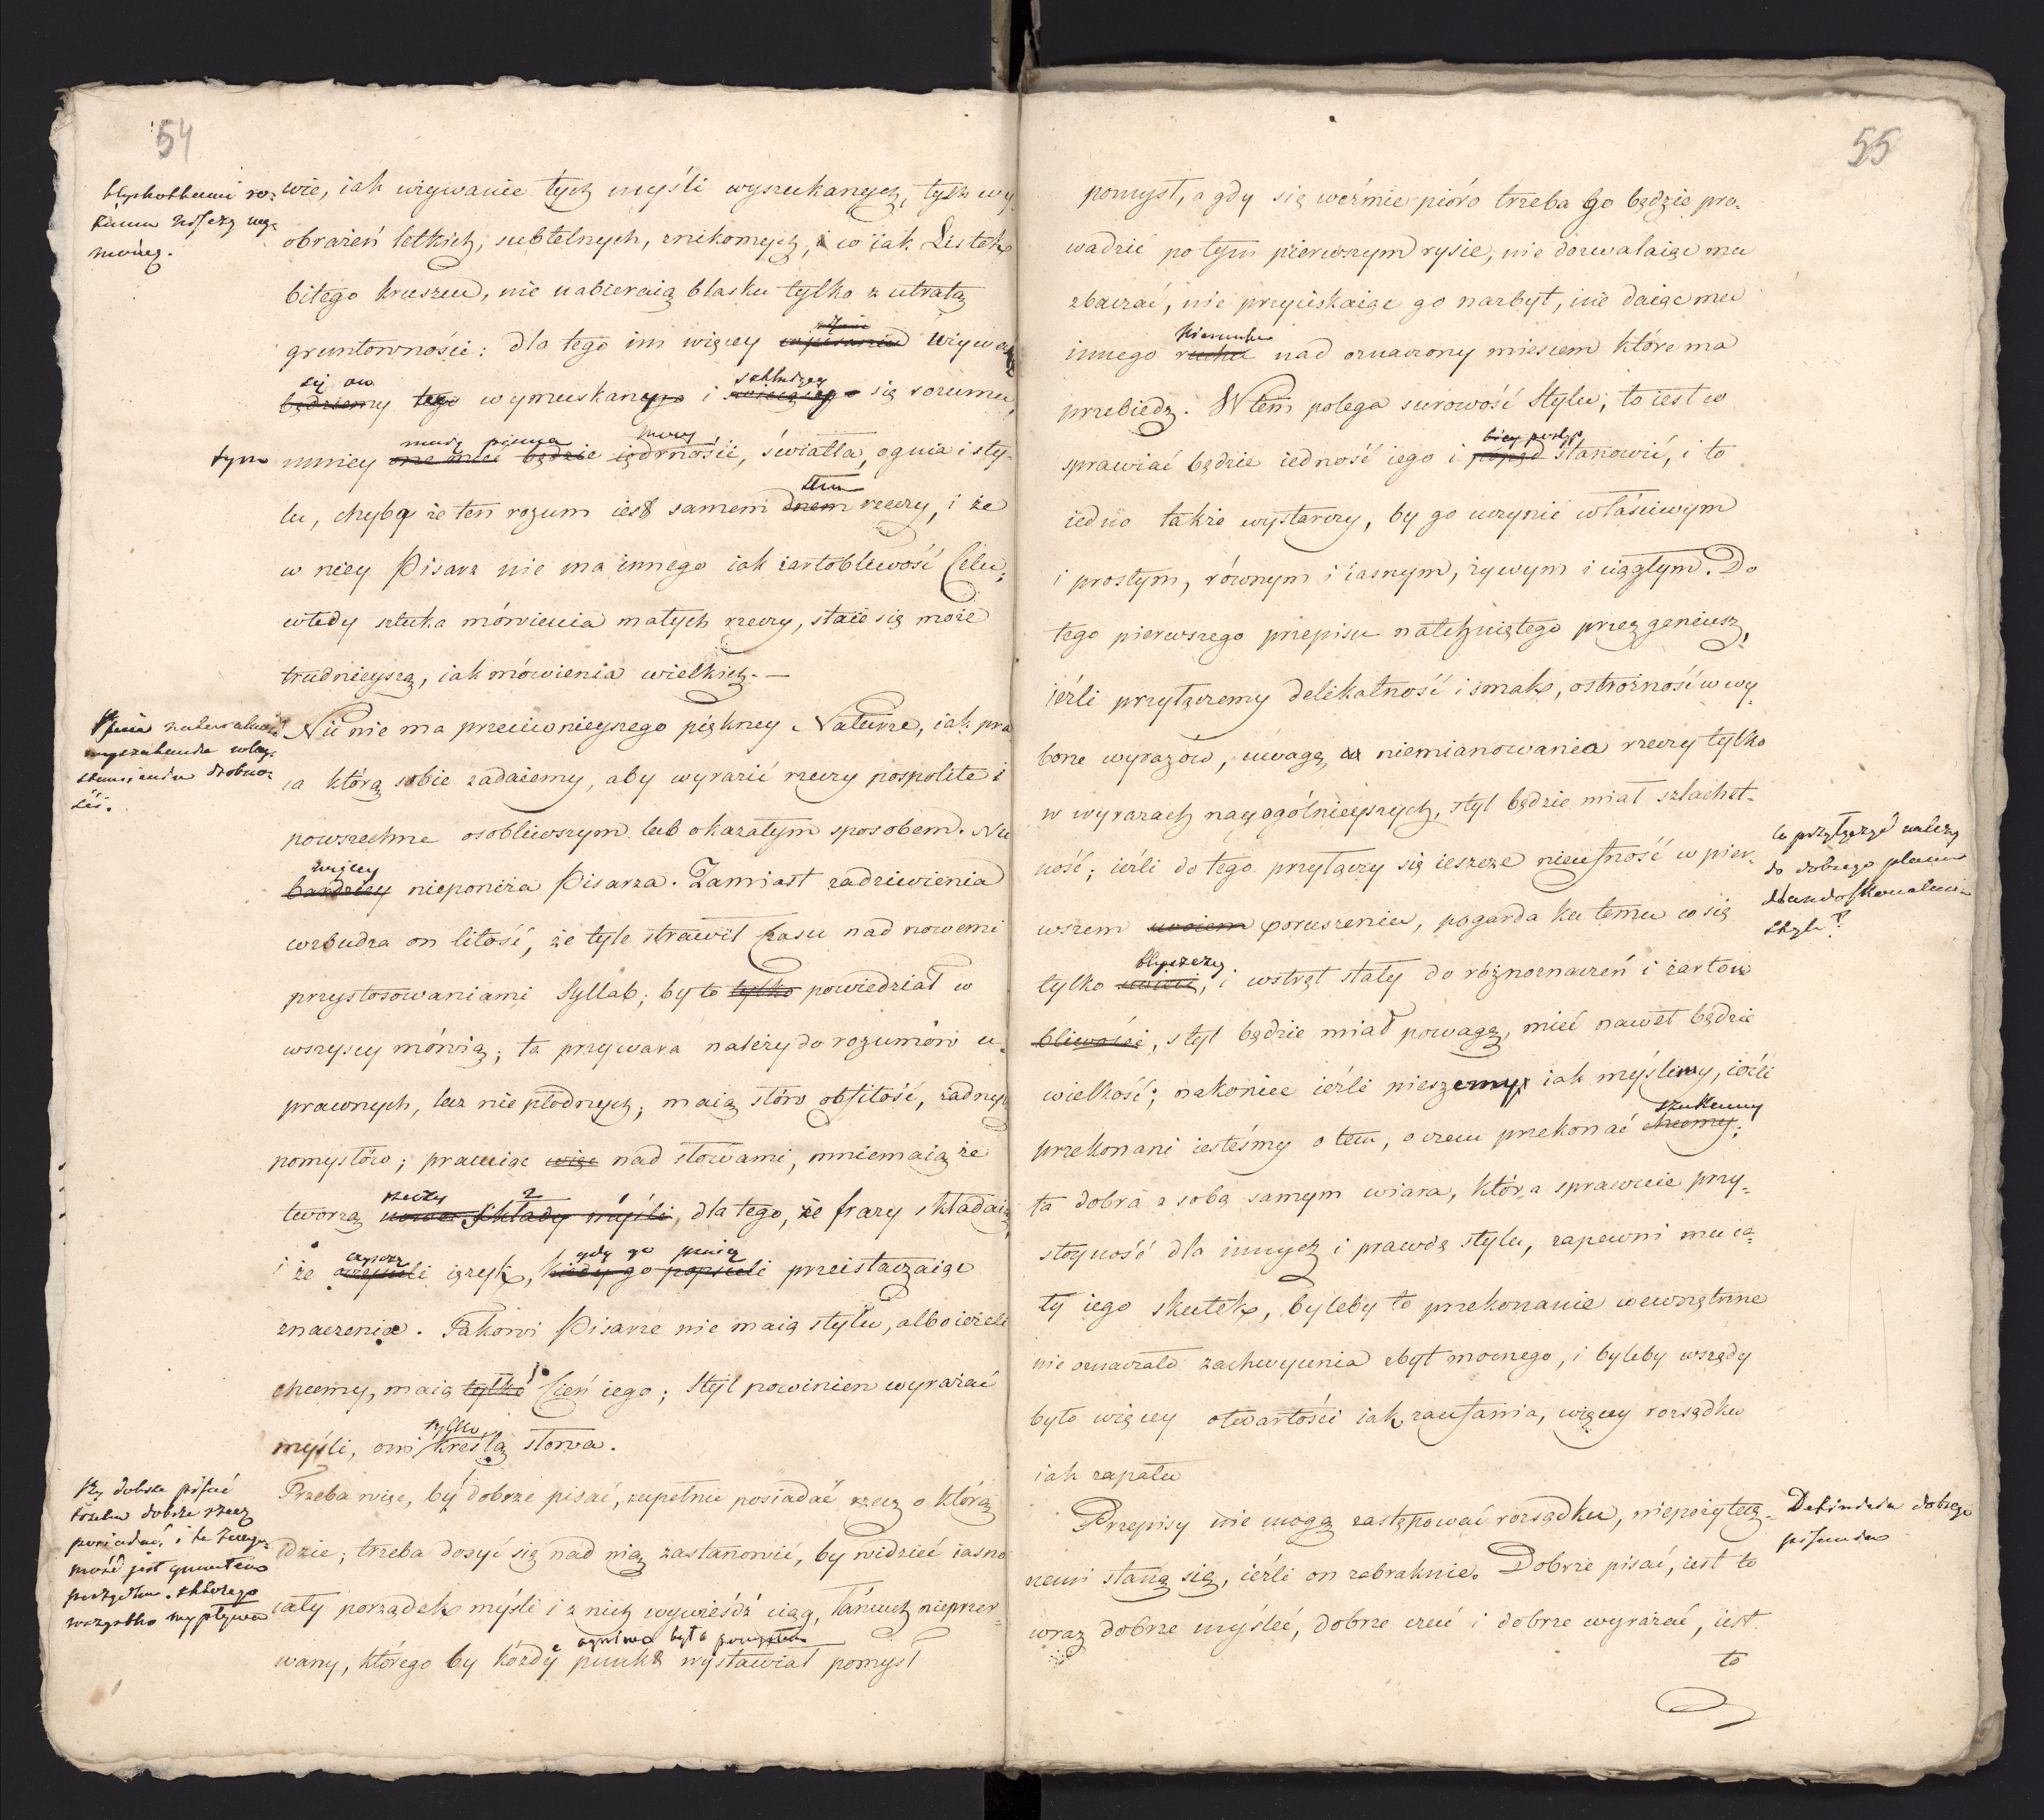 54
wie, iak używanie tych myśli wyszukanych, tych wy-
obrażeń letkich, subtelnych, znikomych, i co iak Listek
bitego kruszcu, nie nabieraią blasku tylko z utratą
gruntowności: dla tego im więcey używa
się ow
będziemy tego wymuskanego i się rozumu,
tym mniey one mieć będzie iędrności, światła, ognia i sty-
lu, chyba że ten rozum iest samem dnem rzeczy, i że
w niey Pisarz nie ma innego iak żartobliwość Celu;
wtedy sztuka mówienia małych rzeczy, staie się może
trudnieyszą, iak mówienia wielkich.—
Nic nie ma przeciwnieyszego piękney Naturze, iak pra
ca którą sobie zadaiemy, aby wyrazić rzeczy pospolite i
powszechne osobliwszym lub okazałym sposobem. Nic
więcey
bardziey nieponiża Pisarza. Zamiast zadziwienia
wzbudza on litość, że tyle strawił Czasu nad nowemi
przystosowaniami Syllab; by to tylko powiedział co
wszyscy mówią; ta przywara należy do rozumów u-
prawnych, lecz nie płodnych; maią słów obfitość, żadnych
pomysłów; pracuiąc więc nad słowami, mniemaią że
rzeczy 2
tworzą nowe składy myśli, dla tego, że frazy składaią
gdy go psuią
i że ięzyk, kiedy go popsuli przeistaczaiąc
znaczenie. Takowi Pisarze nie maią stylu, albo ieżeli
chcemy, maią tylko Cień iego; Styl powinien wyrażać
tylko
myśli, oni kreślą słowa.
By dobrze pisać
trzeba dobrze rzecz
posiadać, i ta znajo-
mość jest gruntem
porządku, z którego
wszystko wypływa
Trzeba więc, by dobrze pisać, zupełnie posiadać rzecz o którą
idzie; trzeba dosyć się nad nią zastanowić, by widzieć iasno
cały porządek myśli i z nich wywieśdź ciąg, łańcuch nieprzer-
ogniwo było pomysłem
wany, którego by każdy punkt wystawiał pomysł
55
pomysł, a gdy się weźmie pióro trzeba go będzie pro-
wadzić po tym pierwszym rysie, nie dozwalaiąc mu
zbaczać, nie przyciskaiąc go nazbyt, nie daiąc mu
kierunku
innego ruchu nad oznaczony mieścem które ma
przebiedz. W tem polega surowość Stylu; to iest co
bieg postęp
sprawiać będzie iedność iego i popęd stanowić, i to
iedno także wystarczy, by go uczynić właściwym
i prostym, równym i iasnym, żywym i ciągłym. Do
tego pierwszego przepisu natchniętego przez geniusz,
ieźli przyłączemy delikatność i smak, ostrożność w wy-
borze wyrazów, uwagę niemianowania rzeczy tylko
w wyrazach nayogólnieyszych, styl będzie miał szlachet-
ność; ieźli do tego przyłączy się ieszcze nieufność w pier-
wszem swoiem poruszeniu, pogarda ku temu co się
błyszczy
tylko świeci, i wstręt stały do różnoznaczeń i żartow
bliwości, styl będzie miał powagę, mieć nawet będzie
wielkość; nakoniec ieźli pieszemy iak myślemy, ieźli
szukamy
przekonani iesteśmy o tem, o czem przekonać chcemy;
ta dobra z sobą samym wiara, która sprawuie przy-
stoyność dla innych i prawdę stylu, zapewni mu ca-
ły iego skutek, byleby to przekonanie wewnętrzne
nie oznaczało zachwycenia zbyt mocnego, i byleby wszędy
było więcey otwartości iak zaufania, więcey rozsądku
iak zapału
Przepisy nie mogą zastępować rozsądku, niepożytecz-
nemi staną się, ieźli on zabraknie. Dobrze pisać, iest to
wraz dobrze myśleć, dobrze czuć i dobrze wyrażać, iest
to
co przyłączyć należy
do dobrego planu
dla udoskonalenia
stylu?
Definicia dobrego
pisania